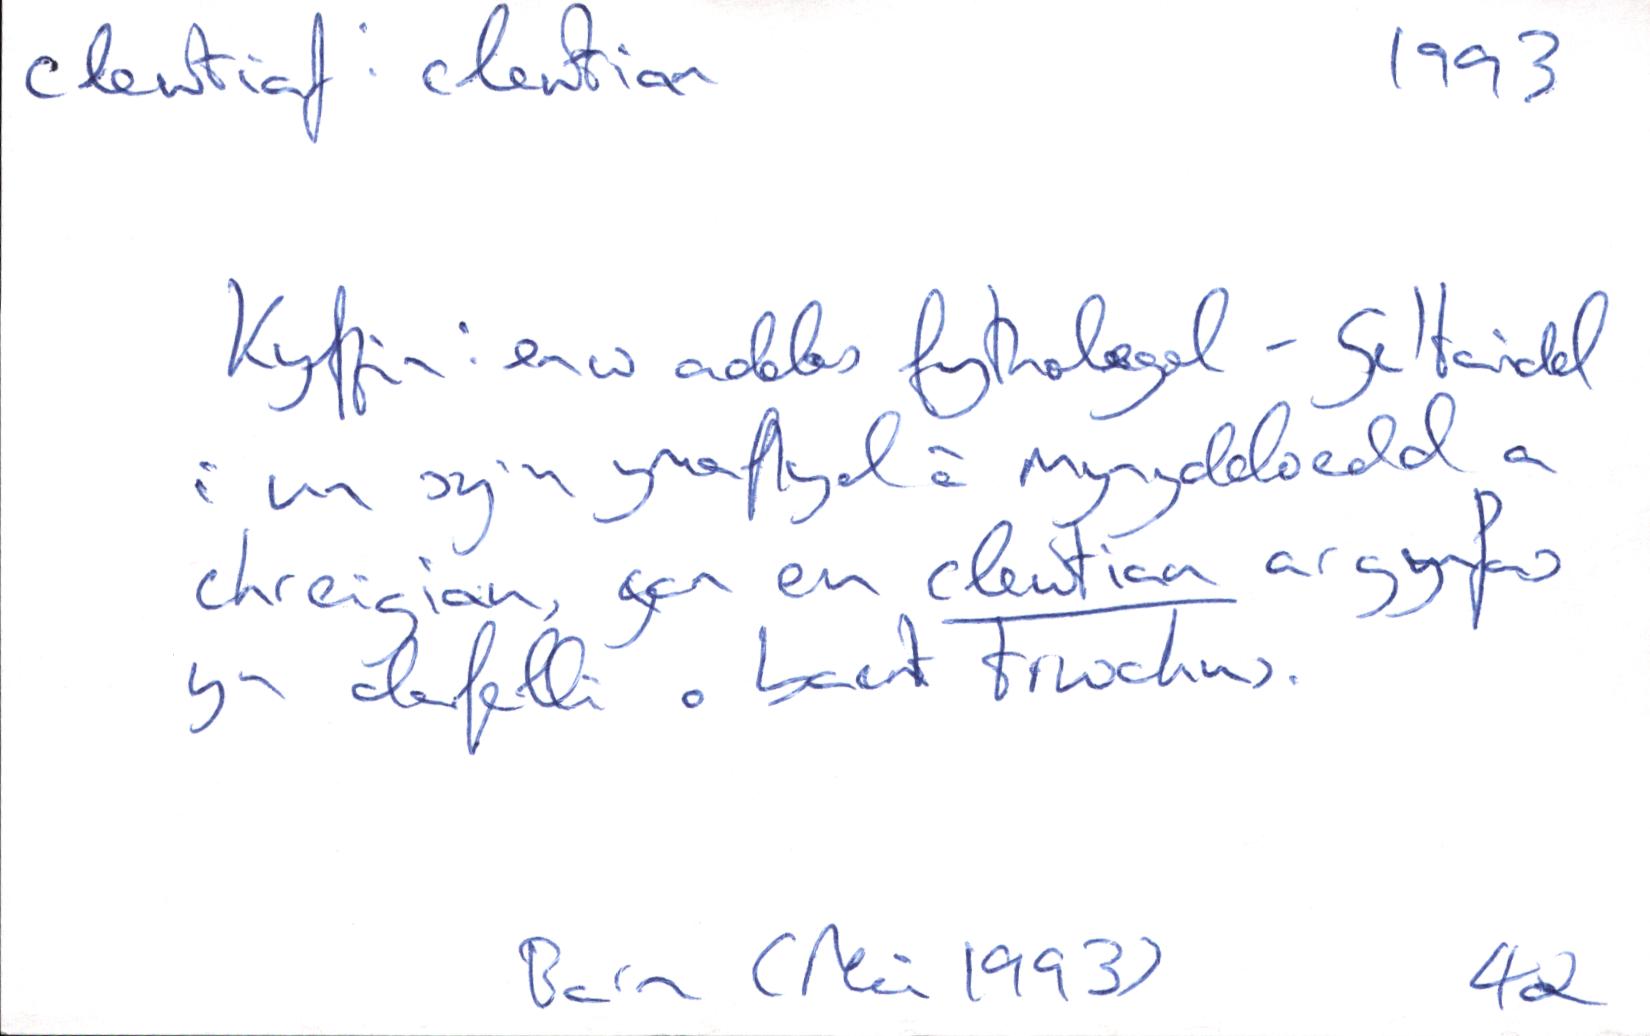 clewtiaf : clewtian 1993
Kyffin : enw addas fytholegol - Geltaidd
i un sy'n ymaflyd â mynyddoedd a
chreigiau, gan eu clewtian ar gynfas
yn dafelli o baent trwchus.
Barn (Mai 1993) 42